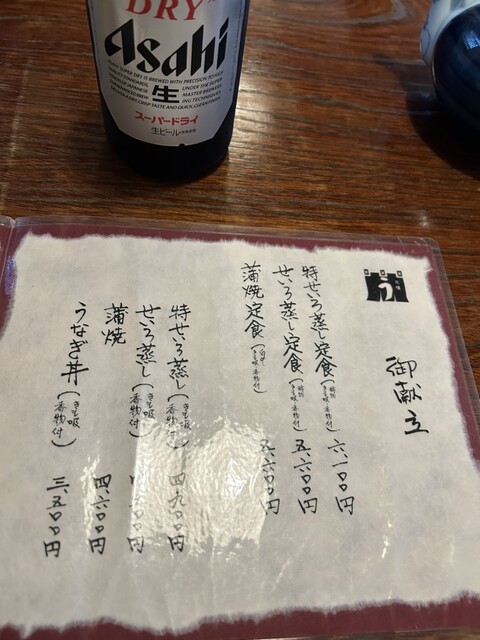 DRY
Asahi
生
スーパードライ
生ビール
う
御献立
特せいろ蒸し定食 六、一〇〇円
せいろ蒸し定食 五、六〇〇円
蒲焼定食 五、六〇〇円
特せいろ蒸し(きも吸 香物付) 四、九〇〇円
せいろ蒸し(きも吸 香物付) 円
蒲焼 四、六〇〇円
うなぎ丼(きも吸 香物付) 三、五〇〇円